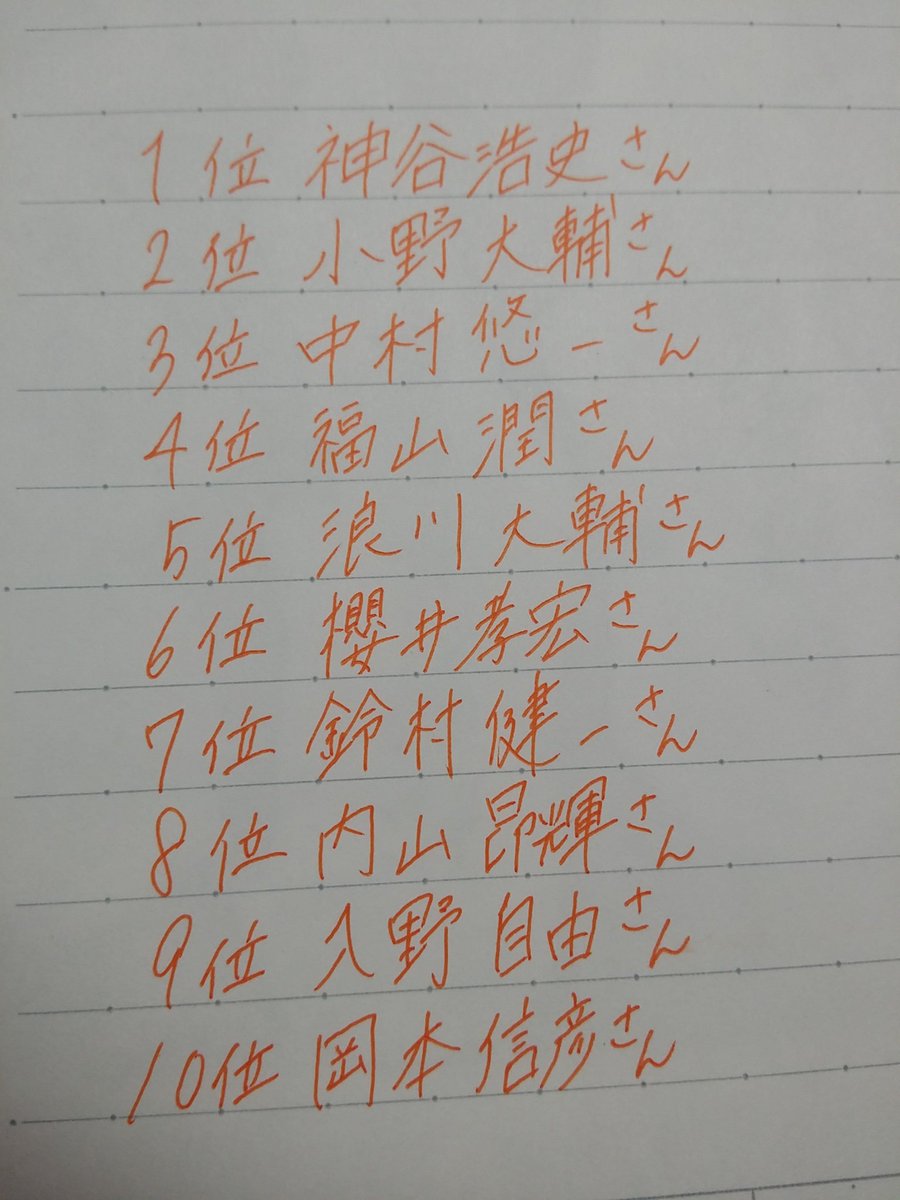 1位 神谷浩史さん
2位 小野大輔さん
3位 中村悠一さん
4位 福山潤さん
5位 浪川大輔さん
6位 櫻井孝宏さん
7位 鈴村健一さん
8位 内山昂輝さん
9位 入野自由さん
10位 岡本信彦さん